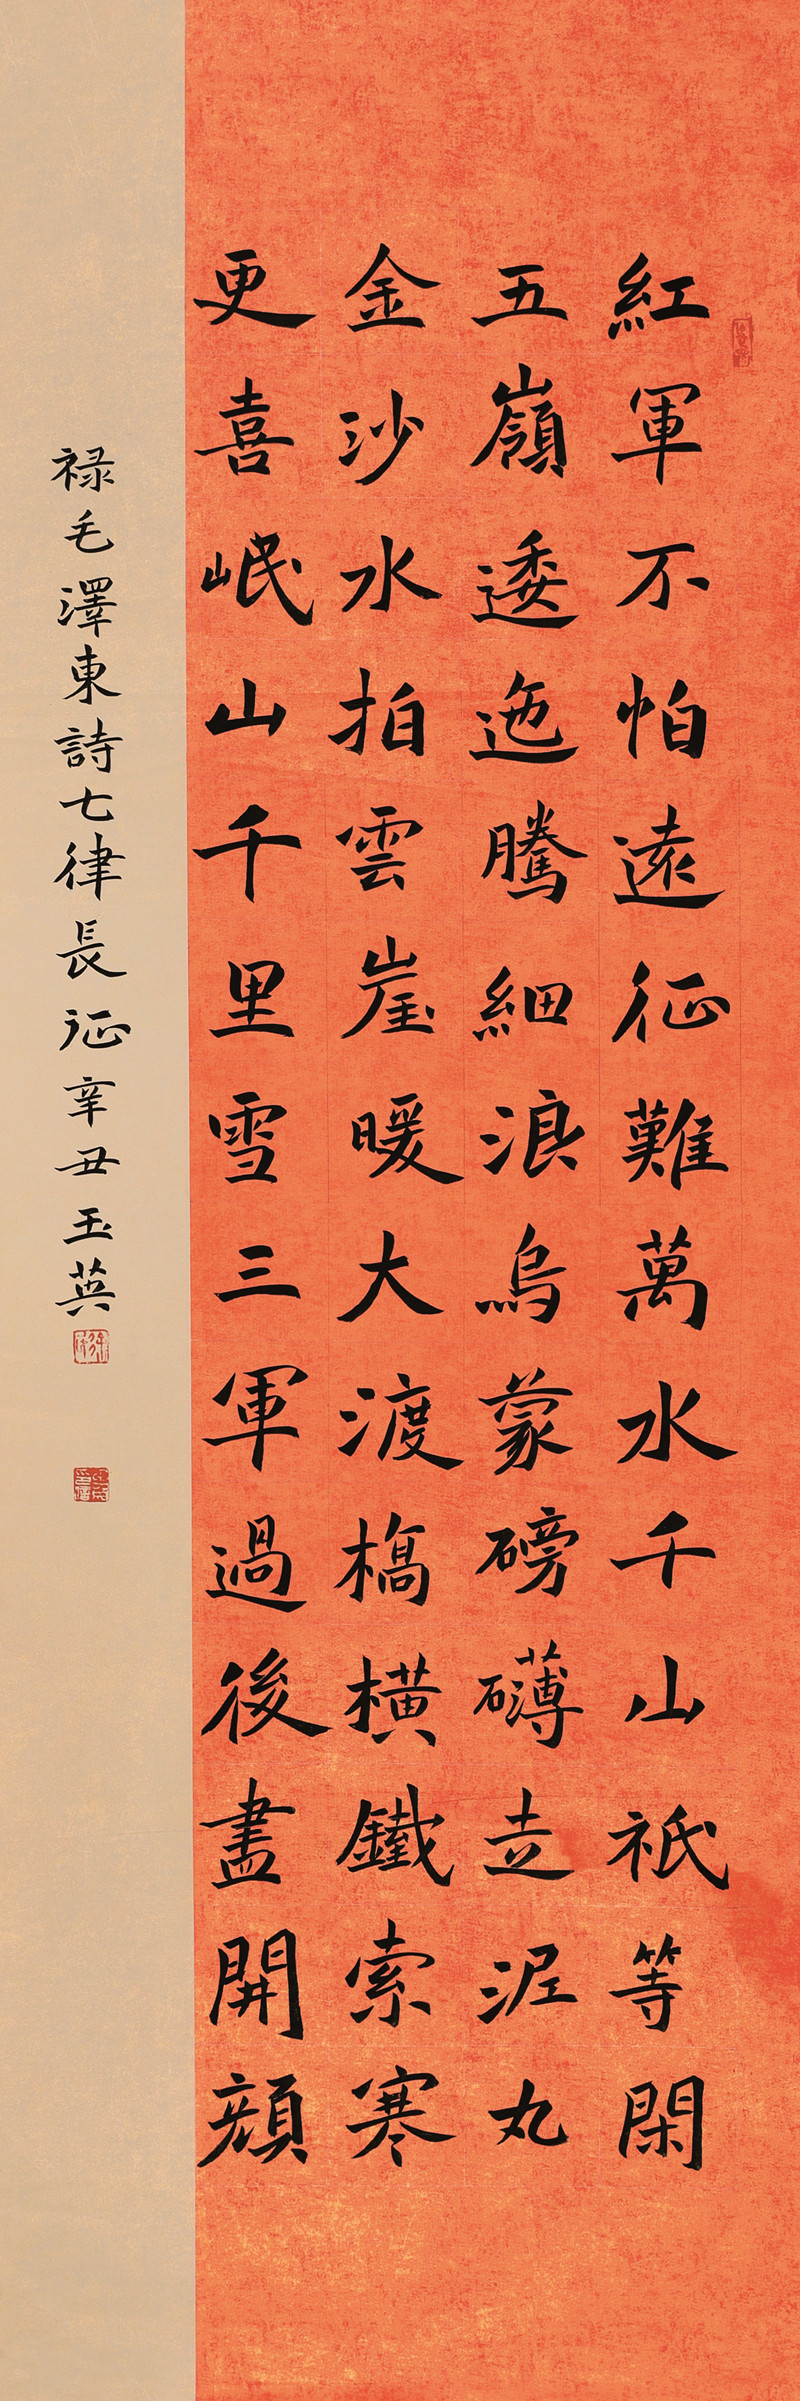 紅軍不怕遠征難萬水千山祇等閑
五嶺逶迤騰細浪烏蒙磅礴走泥丸
金沙水拍雲崖暖大渡橋橫鐵索寒
更喜岷山千里雪三軍過後盡開顏
禄毛澤東詩七律長征辛丑玉英